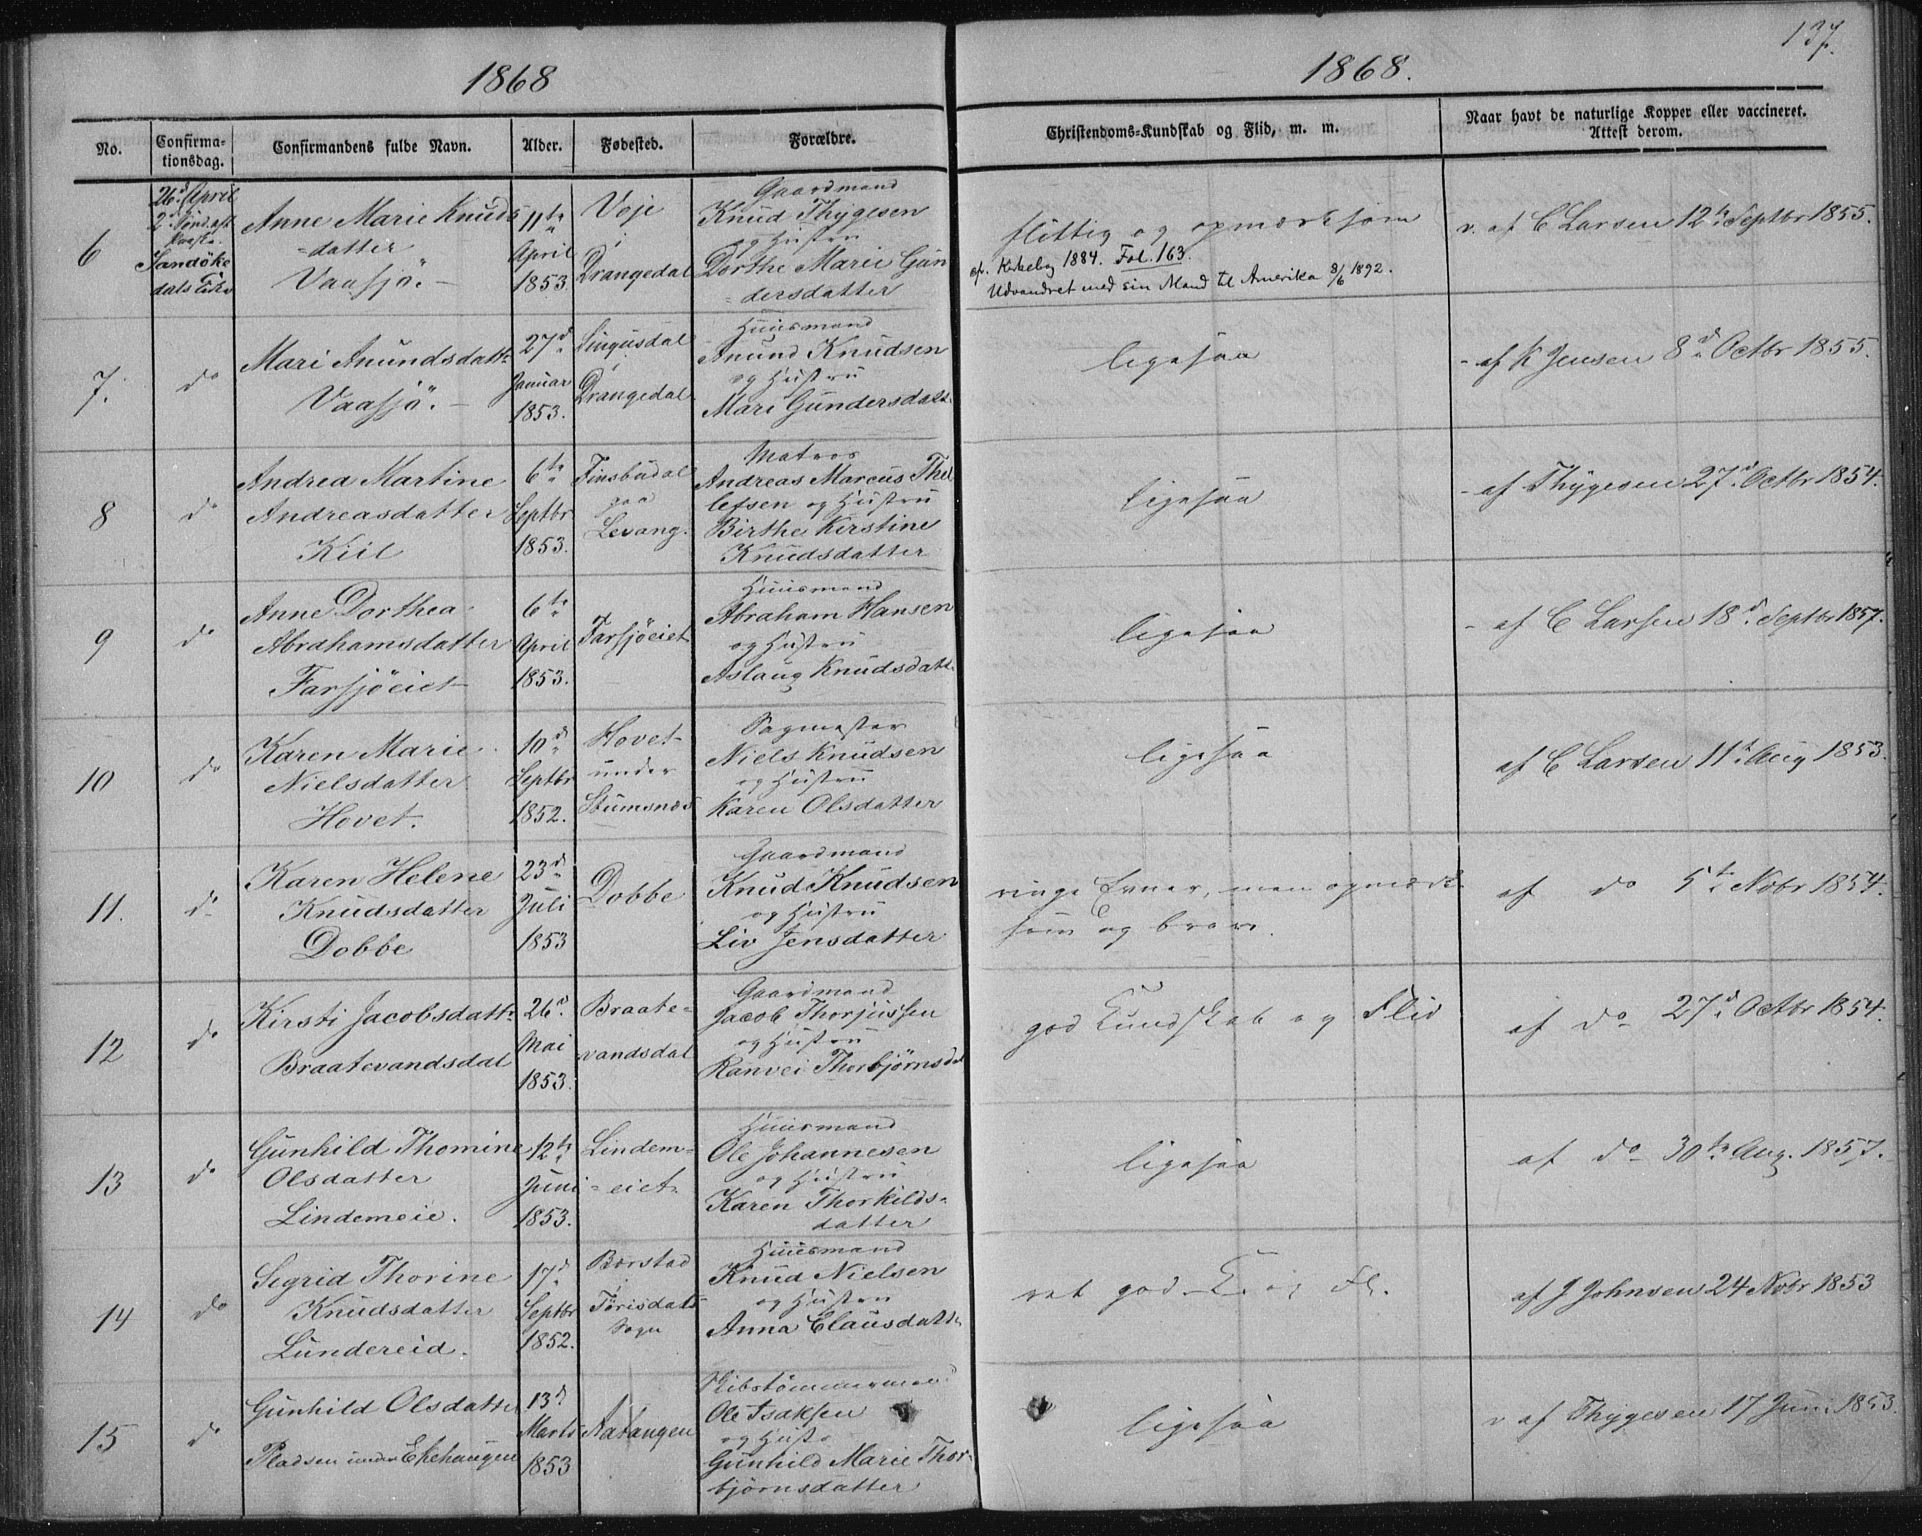 137.
1868
1868.
No.
Confirma-
tionsdag.
Confirmandens fulde Navn.
Alder.
Fødested.
Forældre.
Christendoms-Kundskab og Flid, m. m.
Naar havt de naturlige Kopper eller vaccineret.
Attest derom.
6
26d April
2d Sönd. eft.
Paaske
Sandöke
dals Kirke
Anne Marie Knuds
-datter
Vaasjö.
11te
April
1853
Voje
i
Drangedal
Gaardmand
Knud Thygesen
og Hustru
Dorthe Marie Gun
dersdatter
flittig og opmærksom
cfr. Kirkebog 1884. Fol. 163.
Udvandret med sin Mand til Amerika 8/6 1892.
v. af C Larsen 12te Septbr 1855.
7.
do
Mari Anundsdattr
Vaasjö.
27d
Januar
1853.
Lingusdal
i
Drangedal
Huusmand
Anund Knudsen
og Hustru
Mari Gundersdatt.
ligesaa
- af K Jensen 8d Octbr 1855.
8
do
Andrea Martine
Andreasdatter
Kiil
6te
Septbr
1853.
Finsbudal
paa
Levang.
Matros
Andreas Marcus Thel
lefsen og Hustru
Birthe Kirstine
Knudsdatter
ligesaa
- af Thygesen 27d Octbr 1854.
9
do
Anne Dorthea
Abrahamsdatter
Farsjöeiet
6te
April
1853.
Farsjöeiet
Huusmand
Abraham Hansen
og Hustru
Aslaug Knudsdatt.
ligesaa
- af C Larsen 18d Septbr 1857.
10
do
Karen Marie
Nielsdatter
Hovet.
10d
Septbr
1852.
Hovet
under
Stumsnes
Sagmester
Niels Knudsen
og Hustru
Karen Olsdatter
ligesaa
af C Larsen 11te Aug 1853.
11.
do
Karen Helene
Knudsdatter
Dobbe
23d
Juli
1853
Dobbe
Gaardmand
Knud Knudsen
og Hustru
Liv Jensdatter
ringe Evner, men opmærk
som og brav.
af do 5te Novbr 1854.
12
do
Kirsti Jacobsdattr
Braatevandsdal
26d
Mai
1853.
Braate-
vandsdal
Gaardmand
Jacob Thorjussen
og Hustru
Ranvei Thorbjørnsd
god Kundskab og Flid
af do 27d Octbr 1854.
13
do
Gunhild Thomine
Olsdatter
Lindemeie.
12te
Juni
1853.
Lindem-
-eiet
Huusmand
Ole Johannesen
og Hustru
Karen Thorkilds-
datter
ligesaa
af do 30te Aug. 1857.
14
do
Sigrid Thorine
Knudsdatter
Lundereid.
17d
Septbr
1852.
Borstad
i
Törisdals
Sogn
Huusmand
Knud Nielsen
og Hustru
Anna Clausdattr
ret god K. og Fl.
af J Johnsen 24 Novbr 1853
15
do
Gunhild Olsdatter
Pladsen under Ekehaugen
13d
Marts
1853
Aatangen
Skibstömmermand
Ole Isaksen
og Hustr
Gunhild Marie Thor-
bjørnsdatter
ligesaa
v af Thygesen 17 Juni 1853.